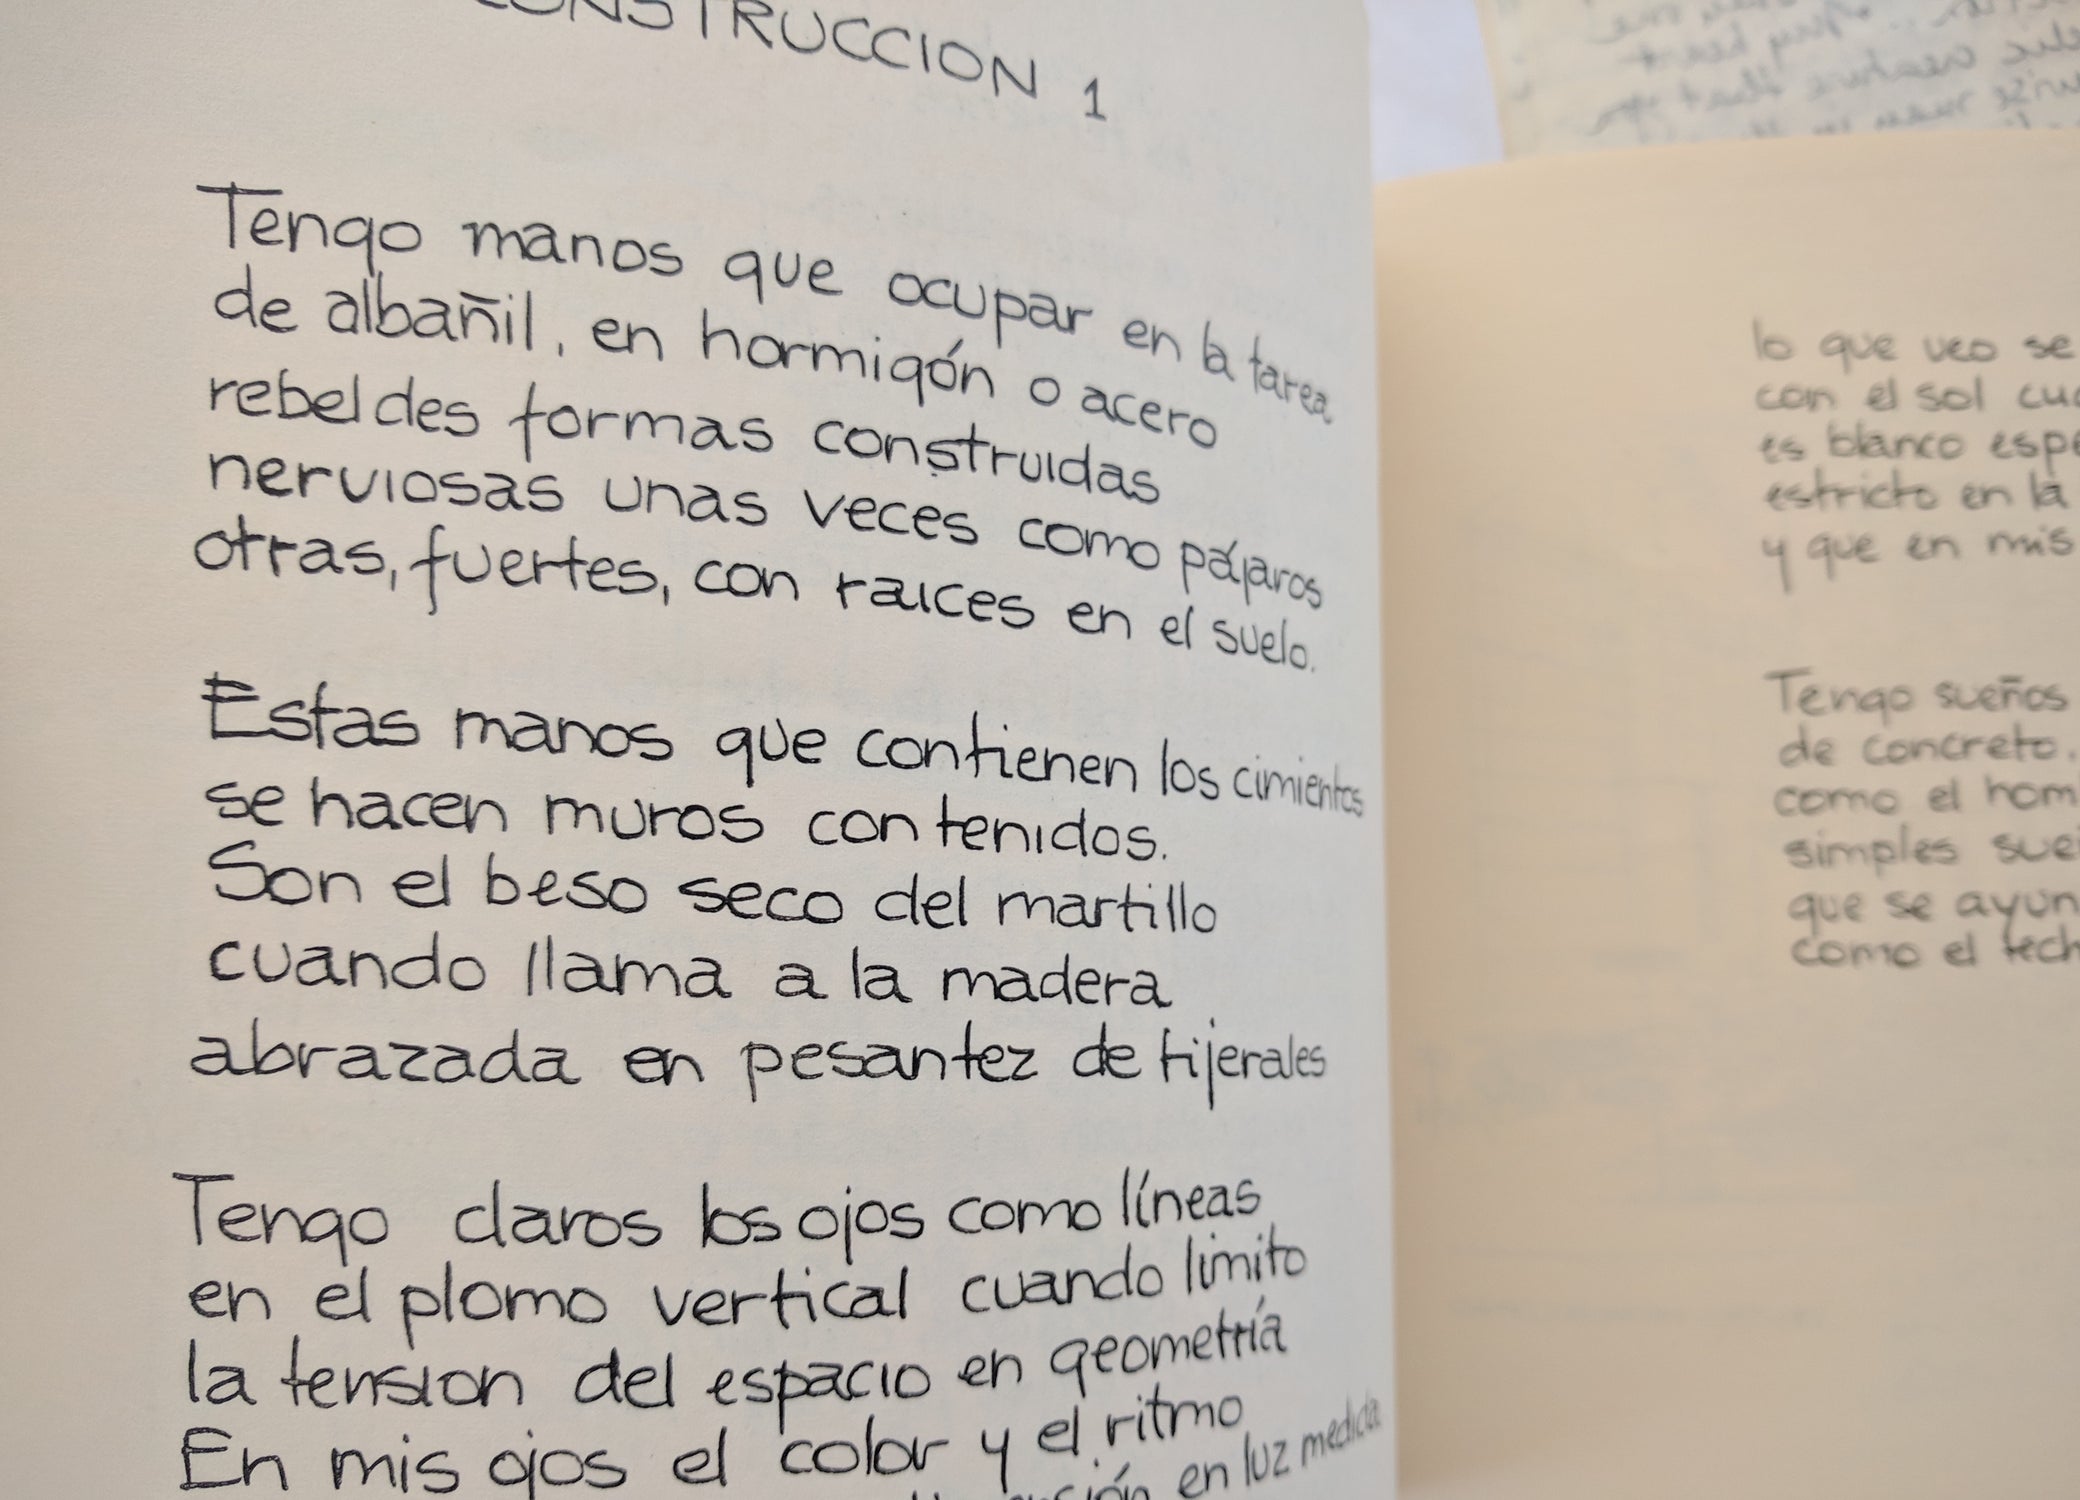 CONSTRUCCION 1
Tengo manos que ocupar en la tarea
de albañil, en hormigón o acero
rebeldes formas construidas
nerviosas unas veces como pájaros
otras, fuertes, con raices en el suelo.
Estas manos que contienen los cimientos
se hacen muros contenidos.
Son el beso seco del martillo
cuando llama a la madera
abrazada en pesantez de tijerales
Tengo claros los ojos como líneas
en el plomo vertical cuando limito
la tension del espacio en geometría
En mis ojos el color y el ritmo
en luz medida
lo que veo se
con el sol
es blanco
estricto en la
y que en mis
Tengo sueños
de concreto.
como el
simples
que se
como el